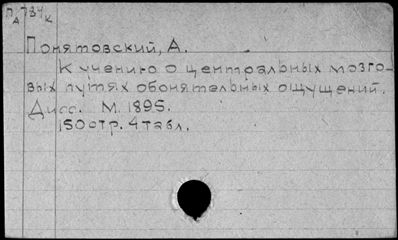 П 784
А К
Понятовский, А.
К учению о центральных мозго-
вых путях обонятельных ощущений.
Дисс. М. 1895.
150 стр. 4 табл.